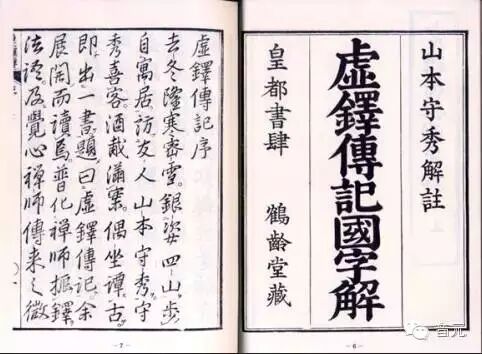 山本守秀解註
虛鐸傳記國字解
皇都書肆 鶴齡堂藏
- 6 -
虛鐸傳記序
去冬隆寒密雪。銀姿四山。步
自寓居訪友人山本守秀。守
秀喜客酒滿案。偶坐譚古。
即出一書題曰虛鐸傳記。余
展閱而讀焉。普化禪師振鐸
法語。及覺心禪師傳來之微
- 7 -
音元